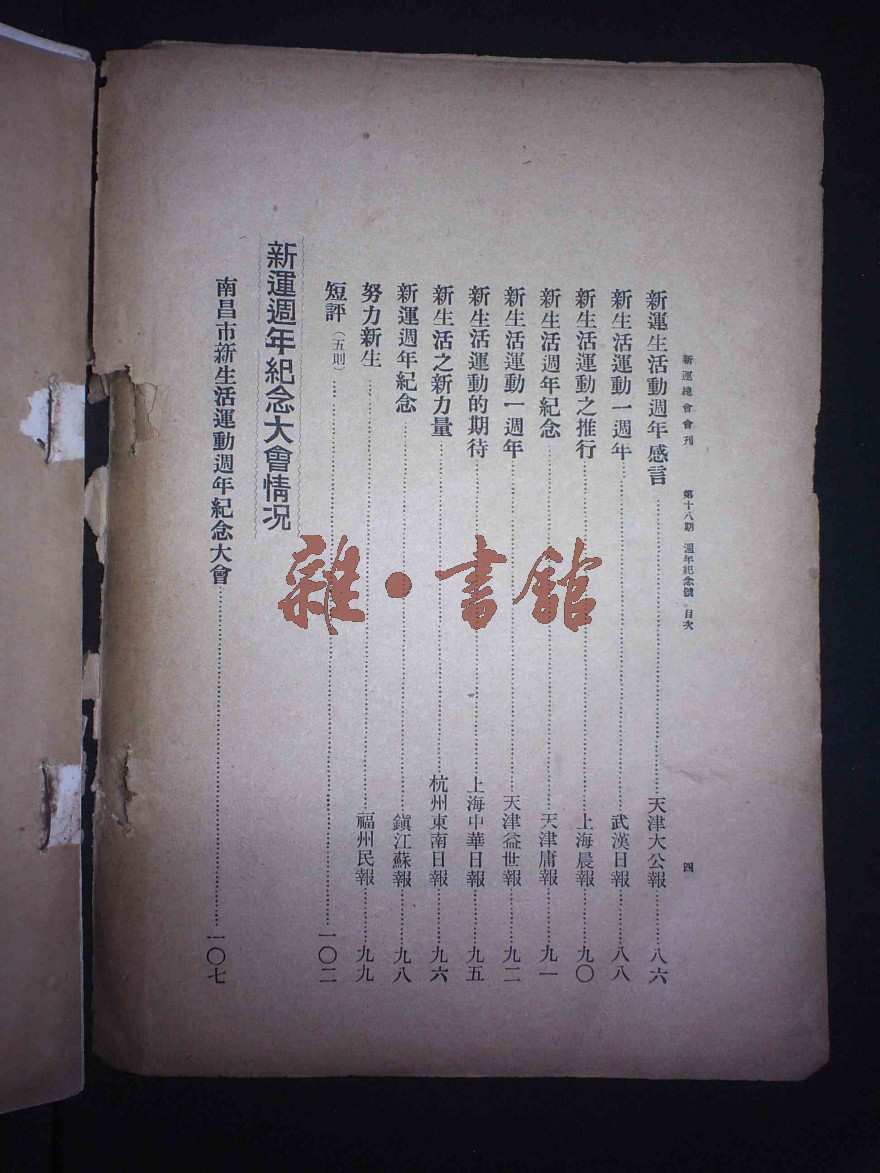 新運總會會刊 第十八期 週年紀念號 目次 四
新運生活動週年感言……天津大公報……八六
新生活運動一週年……武漢日報……八八
新生活運動之推行……上海晨報……九〇
新生活週年紀念……天津庸報……九一
新生活運動一週年……天津益世報……九二
新生活運動的期待……上海中華日報……九五
新生活之新力量……杭州東南日報……九六
新運週年紀念……鎭江蘇報……九八
努力新生……福州民報……九九
短評（五則）……一〇二
新運週年紀念大會情况
南昌市新生活運動週年紀念大會……一〇七
雜·書館